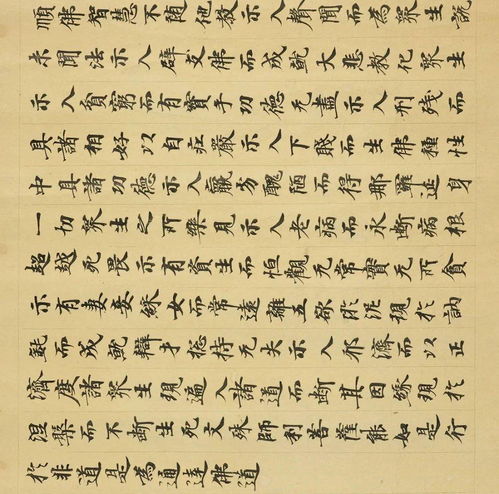 順佛智慧不随他教示入聲聞而為眾生說
未聞法示入辟支佛而成就大悲教化眾生
示入貧窮而有寶手功德无盡示入刑残而
具諸相好以自莊嚴示入下賤而生佛種性
中具諸功德示入羸劣醜陋而得那羅延身
一切眾生之所樂見示入老病而永斷病根
超越死畏示有資生而恒觀无常實无所貪
示有妻妾婇女而常遠離五欲淤泥現於訥
鈍而成就辯才揔持无失示入邪濟而以正
濟度諸眾生現遍入諸道而斷其因緣現於
涅槃而不斷生死文殊師利菩薩能如是行
於非道是為通達佛道